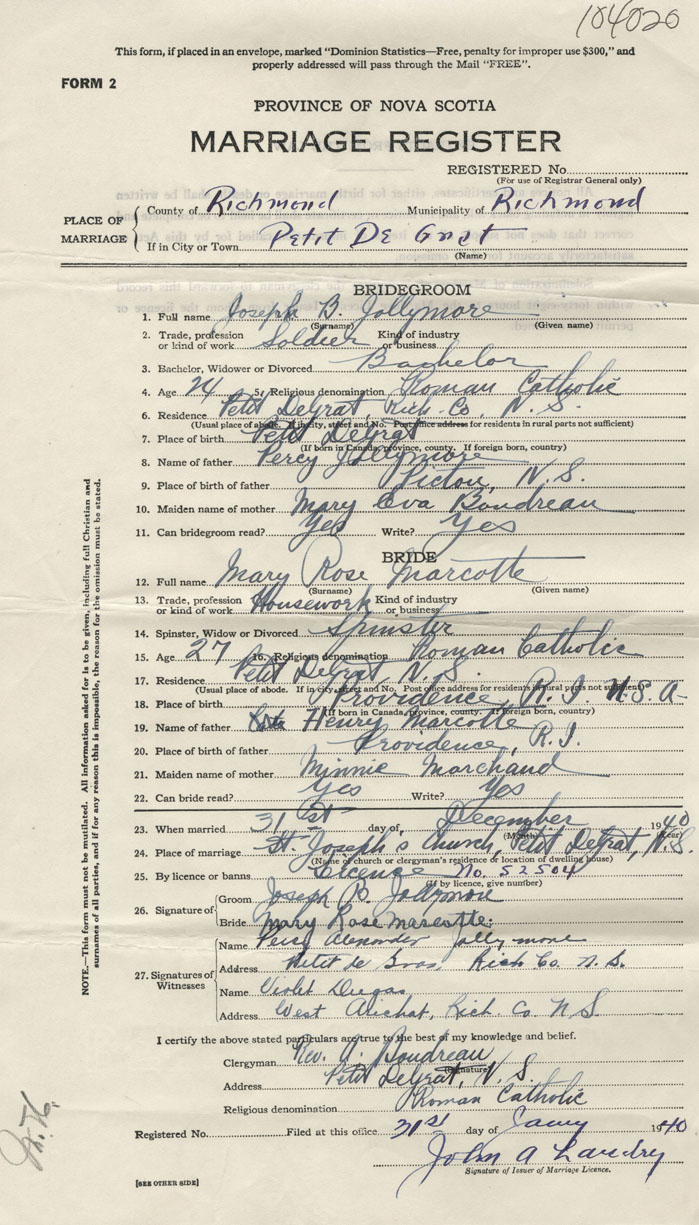 104020
This form, if placed in an envelope, marked "Dominion Statistics—Free, penalty for improper use $300," and
properly addressed will pass through the Mail "FREE".
FORM 2
PROVINCE OF NOVA SCOTIA
MARRIAGE REGISTER
REGISTERED No.
(For use of Registrar General only)
PLACE OF MARRIAGE
County of Richmond Municipality of Richmond
If in City or Town Petit De Grat
(Name)
BRIDEGROOM
1. Full name Joseph B. Jollymore
(Surname) (Given name)
2. Trade, profession or kind of work Soldier Kind of industry or business
3. Bachelor, Widower or Divorced Bachelor
4. Age 24 5. Religious denomination Roman Catholic
6. Residence Petit DeGrat, Rich. Co, N. S.
(Usual place of abode. If in city, street and No. Post office address for residents in rural parts not sufficient)
7. Place of birth Petit DeGrat
(If born in Canada, province, county. If foreign born, country)
8. Name of father Percy Jollymore
9. Place of birth of father Pictou, N. S.
10. Maiden name of mother Mary Eva Boudreau
11. Can bridegroom read? Yes Write? Yes
BRIDE
12. Full name Mary Rose Marcotte
(Surname) (Given name)
13. Trade, profession or kind of work Housework Kind of industry or business
14. Spinster, Widow or Divorced Spinster
15. Age 27 16. Religious denomination Roman Catholic
17. Residence Petit DeGrat, N. S.
(Usual place of abode. If in city, street and No. Post office address for residents in rural parts not sufficient)
18. Place of birth Providence, R. I. U. S. A.
(If born in Canada, province, county. If foreign born, country)
19. Name of father Henry Marcotte
20. Place of birth of father Providence, R. I.
21. Maiden name of mother Minnie Marchand
22. Can bride read? Yes Write? Yes
23. When married 31st day of December 1940
(Month) (Year)
24. Place of marriage St. Joseph's Church, Petit DeGrat, N. S.
(Name of church or clergyman's residence or location of dwelling house)
25. By licence or banns Licence No. 52504
(If by licence, give number)
26. Signature of
Groom Joseph B. Jollymore
Bride Mary Rose Marcotte.
27. Signatures of Witnesses
Name Percy Alexander Jollymore
Address Petit de Gras Rich Co. N. S.
Name Violet Dugas
Address West Arichat, Rich. Co. N S
I certify the above stated particulars are true to the best of my knowledge and belief.
Clergyman Rev. A. Boudreau
(Signature)
Address Petit DeGrat, N. S.
Religious denomination Roman Catholic
Registered No. Filed at this office 31st day of 1940
John A Landry
Signature of Issuer of Marriage Licence.
[SEE OTHER SIDE]
NOTE.—This form must not be mutilated. All information asked for is to be given, including full Christian and
surnames of all parties, and if for any reason this is impossible, the reason for the omission must be stated.